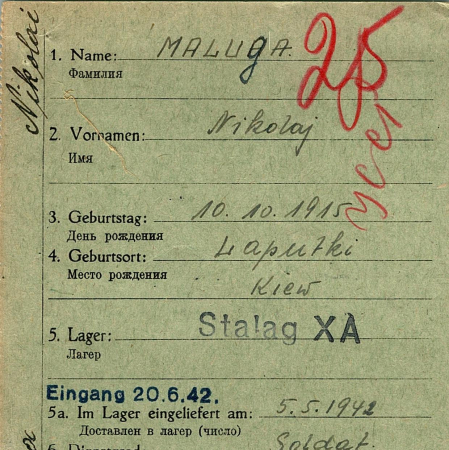 Nikolai
1. Name: MALUGA.
Фамилия
25
2. Vornamen: Nikolaj
Имя
3. Geburtstag: 10. 10. 1915
День рождения
4. Geburtsort: Laputki
Место рождения
Kiew
5. Lager: Stalag XA
Лагер
Eingang 20.6.42.
5a. Im Lager eingeliefert am: 5.5.1942
Доставлен в лагер (число)
Soldat.